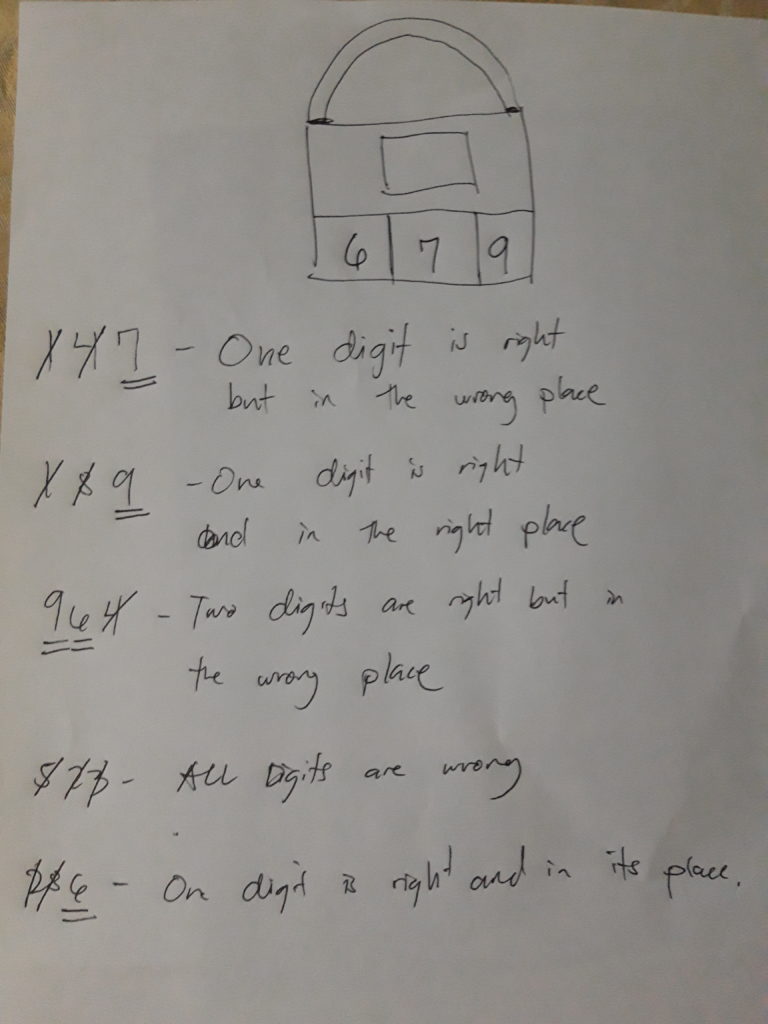 6 7 9
147 - One digit is right
but in the wrong place
189 - One digit is right
and in the right place
964 - Two digits are right but in
the wrong place
523 - All Digits are wrong
286 - On digit is right and in its place.